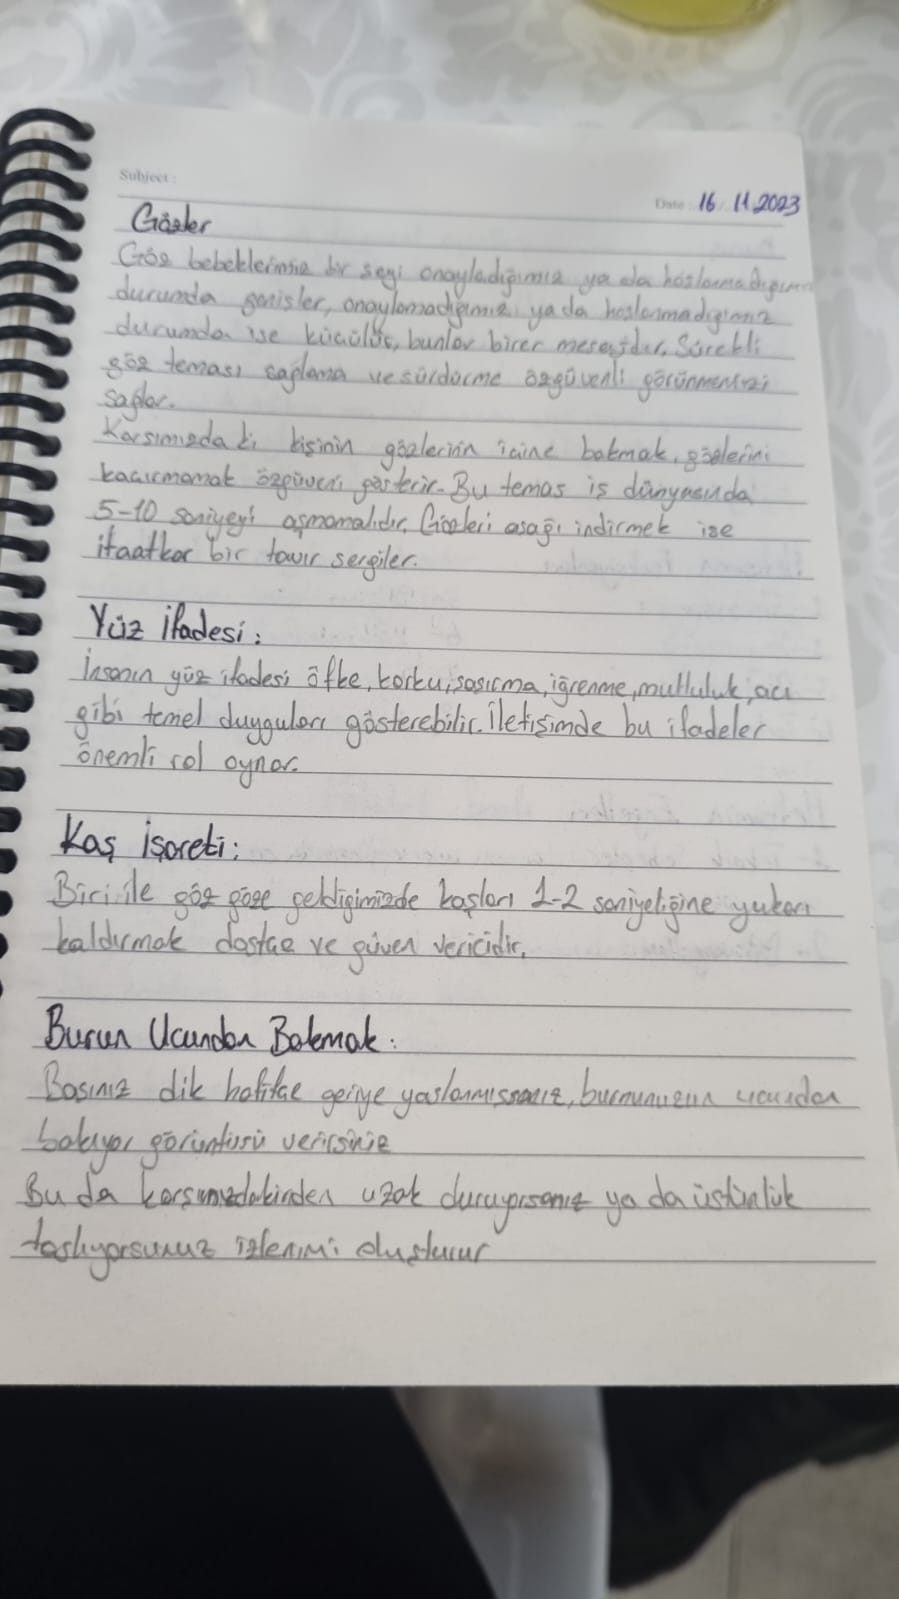 Subject :
Date : 16 / 11.2023
Gözler
Göz bebeklerimiz bir şeyi onayladığımız ya da hoşlanmadığımız
durumda genişler, onaylamadığımız ya da hoşlanmadığımız
durumda ise küçülür, bunlar birer mesajdır. Sürekli
göz teması sağlama ve sürdürme özgüvenli görünmenizi
sağlar.
Karşımızda ki kişinin gözlerinin içine bakmak, gözlerini
kaçırmamak özgüveni gösterir. Bu temas iş dünyasında
5-10 saniyeyi aşmamalıdır. Gözleri aşağı indirmek ise
itaatkar bir tavır sergiler.
Yüz İfadesi :
İnsanın yüz ifadesi öfke, korku, şaşırma, iğrenme, mutluluk, acı
gibi temel duyguları gösterebilir. İletişimde bu ifadeler
önemli rol oynar.
Kaş İşareti :
Biri ile göz göze geldiğimizde kaşları 1-2 saniyeliğine yukarı
kaldırmak dostça ve güven vericidir.
Burun Ucundan Bakmak :
Başınız dik hafifçe geriye yaslanmışsanız, burnunuzun ucundan
bakıyor görüntüsü verirsiniz
Bu da karşınızdakinden uzak duruyorsanız ya da üstünlük
taslıyorsunuz izlenimi oluşturur